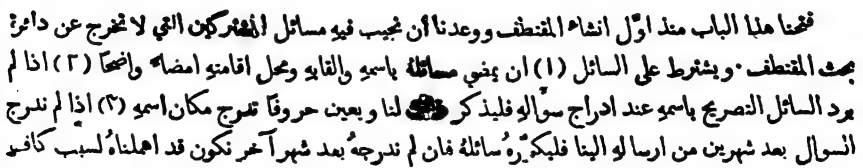 فتحنا هذا الباب منذ اوّل انشاء المقتطف ووعدنا أن نجيب فيهِ مسائل المشتركين التي لا تخرج عن دائرة
بحث المقتطف ٠ ويشترط على السائل (١) ان يمضي مسائلهُ باسمهِ والقابهِ ومحل اقامتهِ امضاءً واضحًا (٢) اذا لم
يرد السائل التصريح باسمهِ عند ادراج سؤالهِ فليذكر ذلك لنا ويعين حروفًا تدرج مكان اسمهِ (٣) اذا لم ندرج
السوال بعد شهرين من ارسالهِ الينا فليكرّرهُ سائلهُ فان لم ندرجهُ بعد شهر آخر نكون قد اهملناهُ لسبب كافٍ